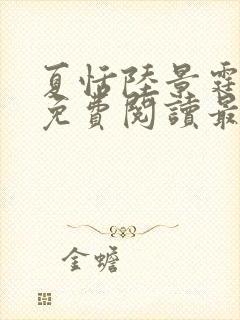 夏恬陸景霆
免費閱讀最
金蟾